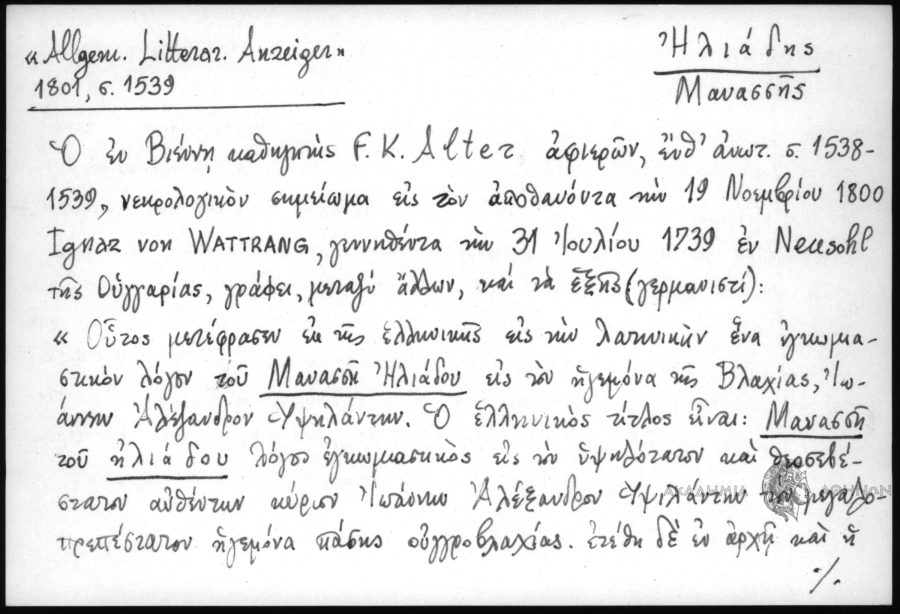 «Allgem. Litterar. Anzeiger»
1801, σ. 1539
Ἠλιάδης
Μανασσῆς
Ὁ ἐν Βιέννῃ καθηγητὴς F. K. Alter ἀφιερῶν, ἔνθ' ἀνωτ. σ. 1538-
1539, νεκρολογικὸν σημείωμα εἰς τὸν ἀποθανόντα τὴν 19 Νοεμβρίου 1800
Ignaz von WATTRANG, γεννηθέντα τὴν 31 Ἰουλίου 1739 ἐν Neusohl
τῆς Οὑγγαρίας, γράφει, μεταξὺ ἄλλων, καὶ τὰ ἑξῆς (γερμανιστί):
« Οὗτος μετέφρασεν ἐκ τῆς ἑλληνικῆς εἰς τὴν λατινικὴν ἕνα ἐγκωμια-
στικὸν λόγον τοῦ Μανασσῆ Ἠλιάδου εἰς τὸν ἡγεμόνα τῆς Βλαχίας, Ἰω-
άννην Ἀλέξανδρον Ὑψηλάντην. Ὁ ἑλληνικὸς τίτλος εἶναι: Μανασσῆ
τοῦ ἠλιάδου λόγος ἐγκωμιαστικὸς εἰς τὸν ὑψηλότατον καὶ θεοσεβέ-
στατον αὐθέντην κύριον Ἰωάννην Ἀλέξανδρον Ὑψιλάντην τὸν μεγαλο-
πρεπέστατον ἡγεμόνα πάσης οὑγγροβλαχίας. ἐτέθη δὲ ἐν ἀρχῇ καὶ ἡ
./.
ΑΚΑΔΗΜΙΑ ΑΘΗΝΩΝ